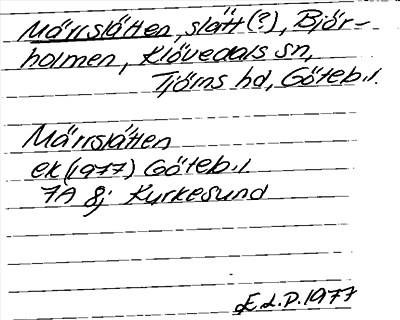 Märrslätten, slätt(?), Björ-
holmen, Klövedals sn,
Tjörns hd, Göteb.l.
Märrslätten
ek (1977) Göteb.l
7A 8j Kyrkesund
E.L.P. 1977